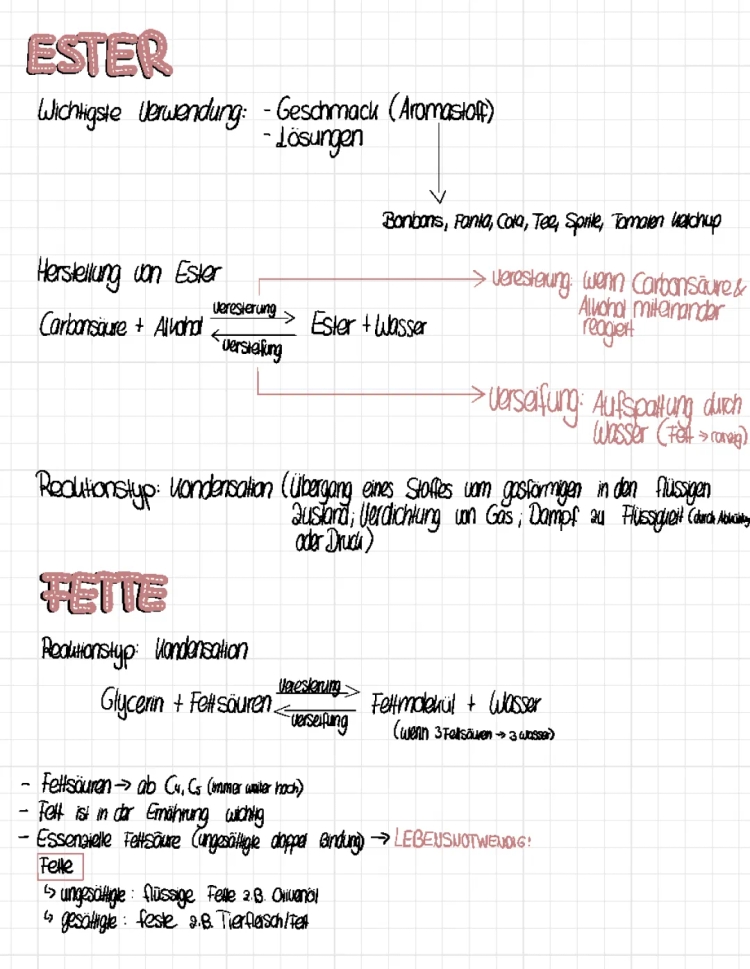 ESTER
Wichtigste Verwendung: - Geschmack (Aromastoff)
- Lösungen
Bonbons, Fanta, Cola, Tee, Sprite, Tomaten Ketchup
Herstellung von Ester
Veresterung: wenn Carbonsäure &
Alkohol miteinander
reagiert
Carbonsäure + Alkohol Veresterung Ester + Wasser
Verseifung
Verseifung: Aufspaltung durch
Wasser (Fett → ranzig)
Reaktionstyp: Kondensation (Übergang eines Stoffes vom gasförmigen in den flüssigen
Zustand; Verdichtung von Gas; Dampf zu Flüssigkeit (durch
oder Druck)
FETTE
Reaktionstyp: Kondensation
Glycerin + Fettsäuren Veresterung Fettmolekül + Wasser
Verseifung (wenn 3 Fettsäuren → 3 Wasser)
- Fettsäuren → ab C4, C5 (immer weiter hoch)
- Fett ist in der Ernährung wichtig
- Essenzielle Fettsäure (ungesättigte doppel Bindung) → LEBENSNOTWENDIG!
Fette
↳ ungesättigte: flüssige Fette z.B. Olivenöl
↳ gesättigte: feste z.B. Tierfleisch/Fett